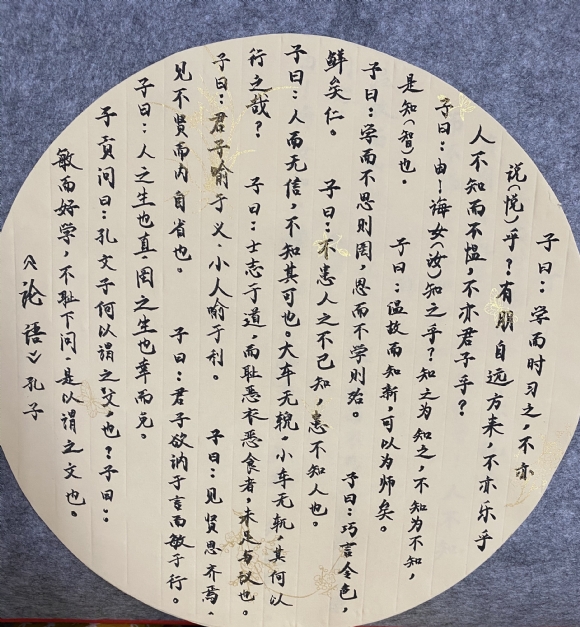 子曰：学而时习之，不亦
说（悦）乎？有朋自远方来，不亦乐乎
人不知而不愠，不亦君子乎？
子曰：由！诲女（汝）知之乎？知之为知之，不知为不知，
是知（智）也。 子曰：温故而知新，可以为师矣。
子曰：学而不思则罔，思而不学则殆。 子曰：巧言令色，
鲜矣仁。 子曰：不患人之不己知，患不知人也。
子曰：人而无信，不知其可也。大车无輗，小车无軏，其何以
行之哉？ 子曰：士志于道，而耻恶衣恶食者，未足与议也。
子曰：君子喻于义，小人喻于利。 子曰：见贤思齐焉，
见不贤而内自省也。 子曰：君子欲讷于言而敏于行。
子曰：人之生也直，罔之生也幸而免。
子贡问曰：孔文子何以谓之文，也？子曰：
敏而好学，不耻下问，是以谓之文也。
《论语》孔子